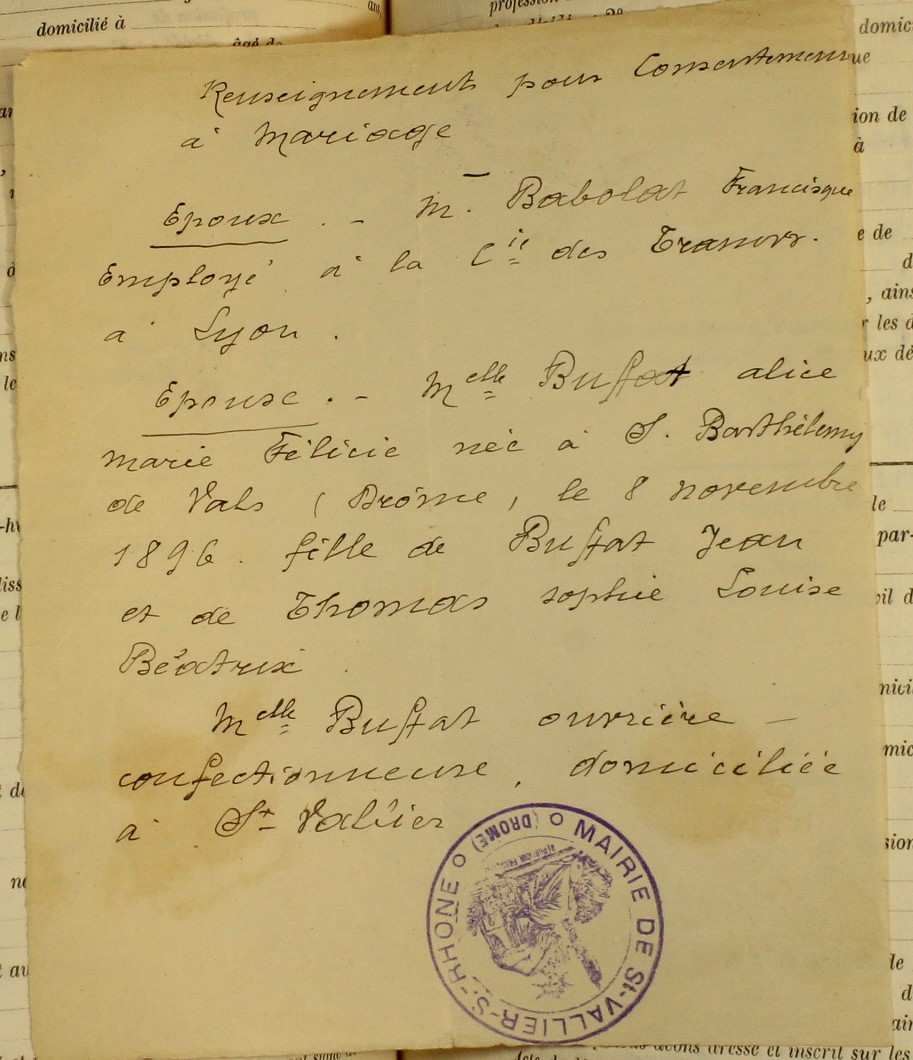 domicilié à
âgé de
profession
domic
Renseignements pour Consentement
à Mariage
Epoux . - Mr Babolat Francisque
Employé à la Cie des Tramw.
à Lyon .
Epouse . - Melle Buffat alice
marie Félicie née à S. Barthélemy
de Vals ( Drôme , le 8 novembre
1896 . fille de Buffat Jean
et de Thomas sophie Louise
Béatrix .
Melle Buffat ouvrière -
confectionneuse , domiciliée
à St Vallier
MAIRIE DE St-VALLIER-S.-RHONE (DROME)
ion de
à
e de
, ains
r les d
ux dé
le
par-
vil d
avons dressé et inscrit sur les